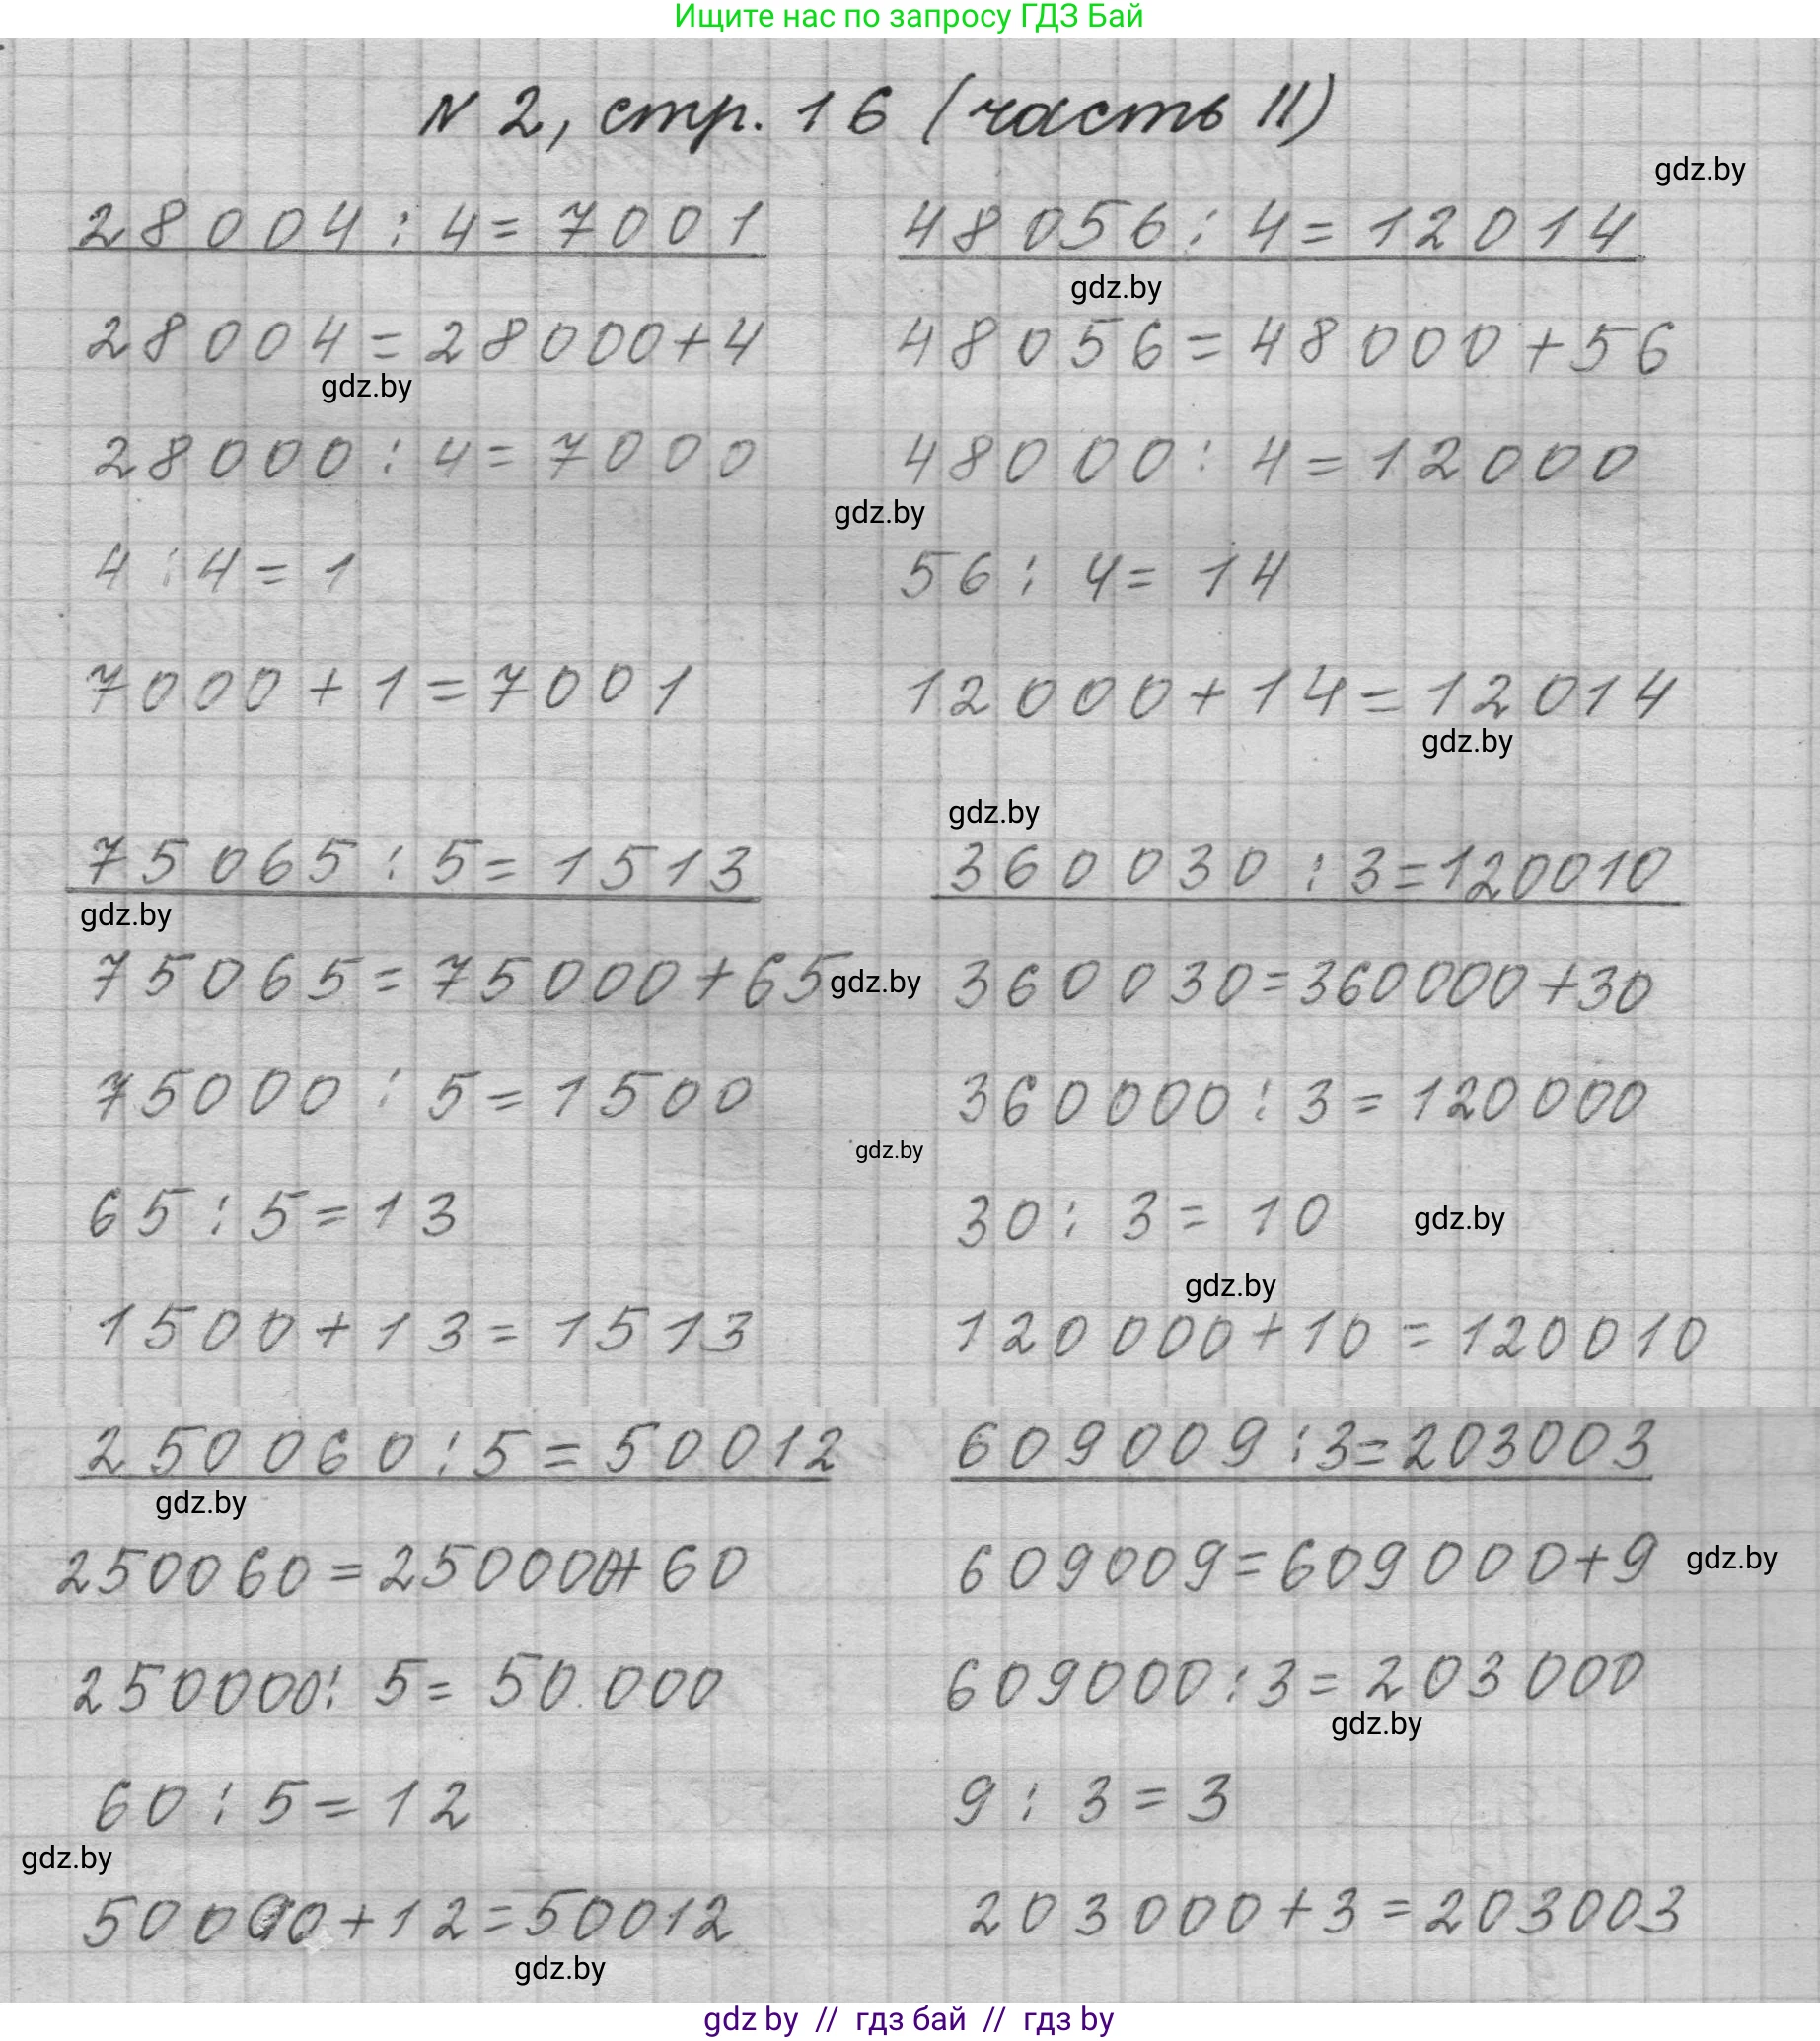 Ищите нас по запросу ГДЗ Бай
N 2, стр. 16 (часть II)
gdz.by
28004 : 4 = 7001
48056 : 4 = 12014
gdz.by
28004 = 28000 + 4
48056 = 48000 + 56
gdz.by
28000 : 4 = 7000
48000 : 4 = 12000
gdz.by
4 : 4 = 1
56 : 4 = 14
7000 + 1 = 7001
12000 + 14 = 12014
gdz.by
gdz.by
75065 : 5 = 1513
360030 : 3 = 120010
gdz.by
75065 = 75000 + 65
gdz.by
360030 = 360000 + 30
75000 : 5 = 1500
360000 : 3 = 120000
gdz.by
65 : 5 = 13
30 : 3 = 10
gdz.by
gdz.by
1500 + 13 = 1513
120000 + 10 = 120010
250060 : 5 = 50012
609009 : 3 = 203003
gdz.by
250060 = 250000 + 60
609009 = 609000 + 9
gdz.by
250000 : 5 = 50.000
609000 : 3 = 203000
gdz.by
60 : 5 = 12
9 : 3 = 3
gdz.by
50000 + 12 = 50012
203000 + 3 = 203003
gdz.by
gdz by // гдз бай // гдз by